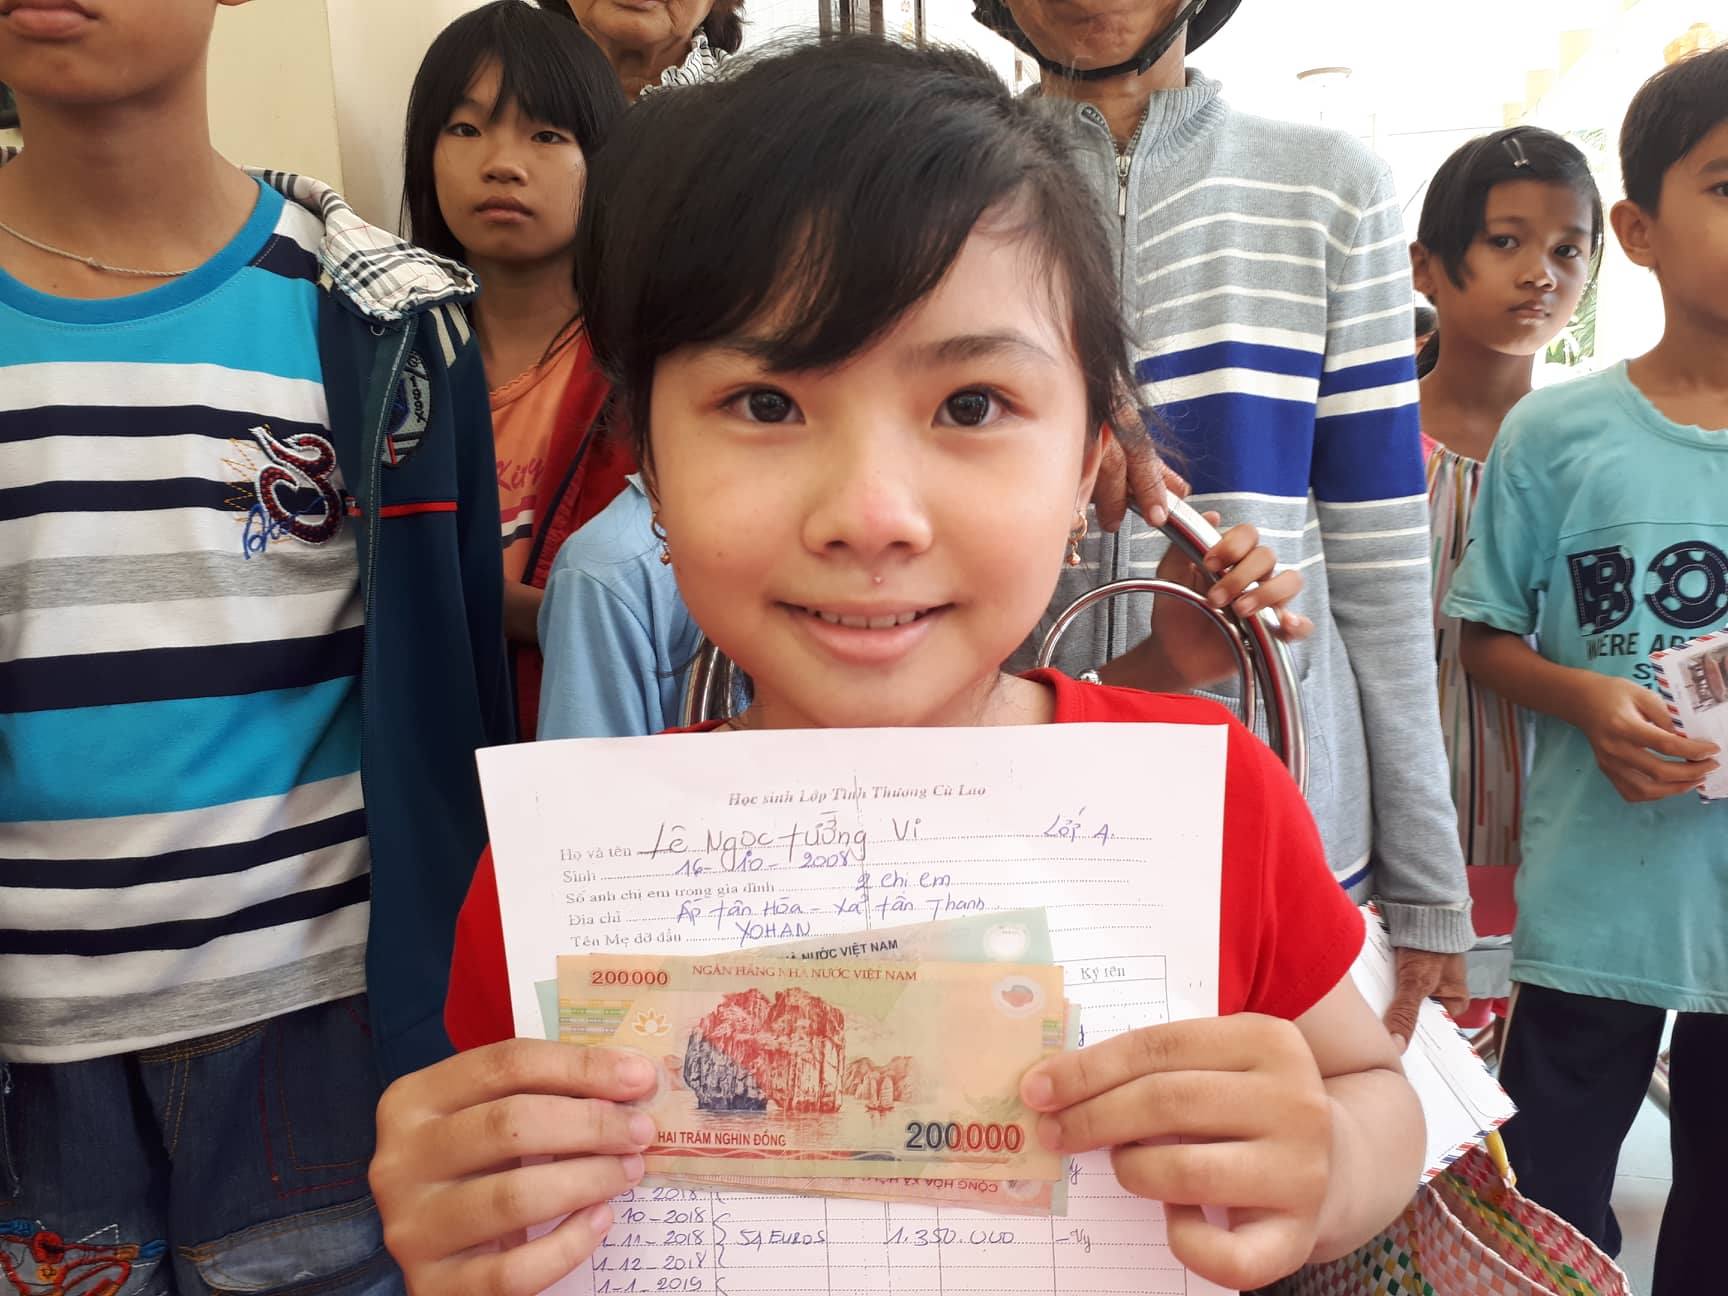 Học sinh Lớp Tình Thương Cù Lao
Họ và tên Lê Ngọc tưởng Vi Lớp A.
Sinh 16-10-2008
Số anh chị em trong gia đình 2 chị em
Địa chỉ Ấp tân Hòa - xã tân Thanh
Tên Mẹ đỡ đầu YOHAN
Ký tên
NƯỚC VIỆT NAM
200000 NGÂN HÀNG NHÀ NƯỚC VIỆT NAM
HAI TRĂM NGHÌN ĐỒNG 200000
CỘNG HÒA XÃ
9-2018
10-2018
1-11-2018 51 EUROS 1.350.000 -Vy
1-12-2018
1-1-2019
Kity
BO
WERE